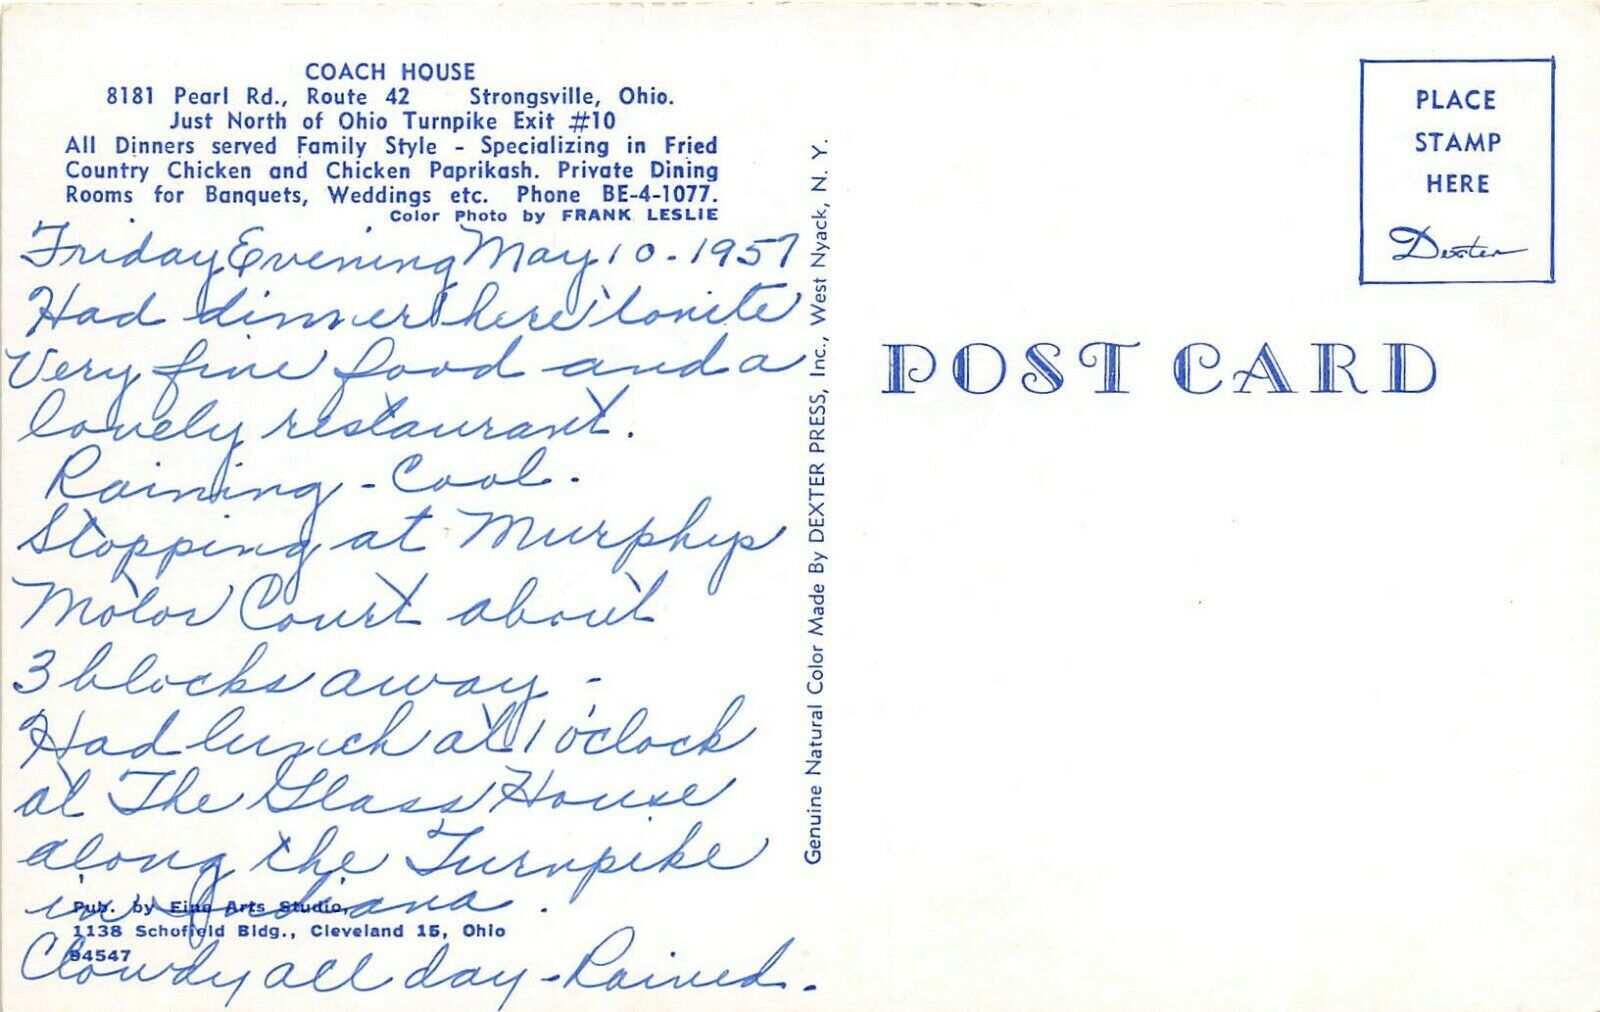 COACH HOUSE
8181 Pearl Rd., Route 42 Strongsville, Ohio.
Just North of Ohio Turnpike Exit #10
All Dinners served Family Style - Specializing in Fried
Country Chicken and Chicken Paprikash. Private Dining
Rooms for Banquets, Weddings etc. Phone BE-4-1077.
Color Photo by FRANK LESLIE
Friday Evening May 10 - 1957
Had dinner here tonite
Very fine food and a
lovely restaurant.
Raining - Cool.
Stopping at Murphys
Motor Court about
3 blocks away -
Had lunch at 1 o'clock
at The Glass House
along the Turnpike
in Indiana.
Pub. by Fine Arts Studio,
1138 Schofield Bldg., Cleveland 15, Ohio
94547
Clowdy all day - Rained.
Genuine Natural Color Made By DEXTER PRESS, Inc., West Nyack, N. Y.
PLACE
STAMP
HERE
Dexter
POST CARD